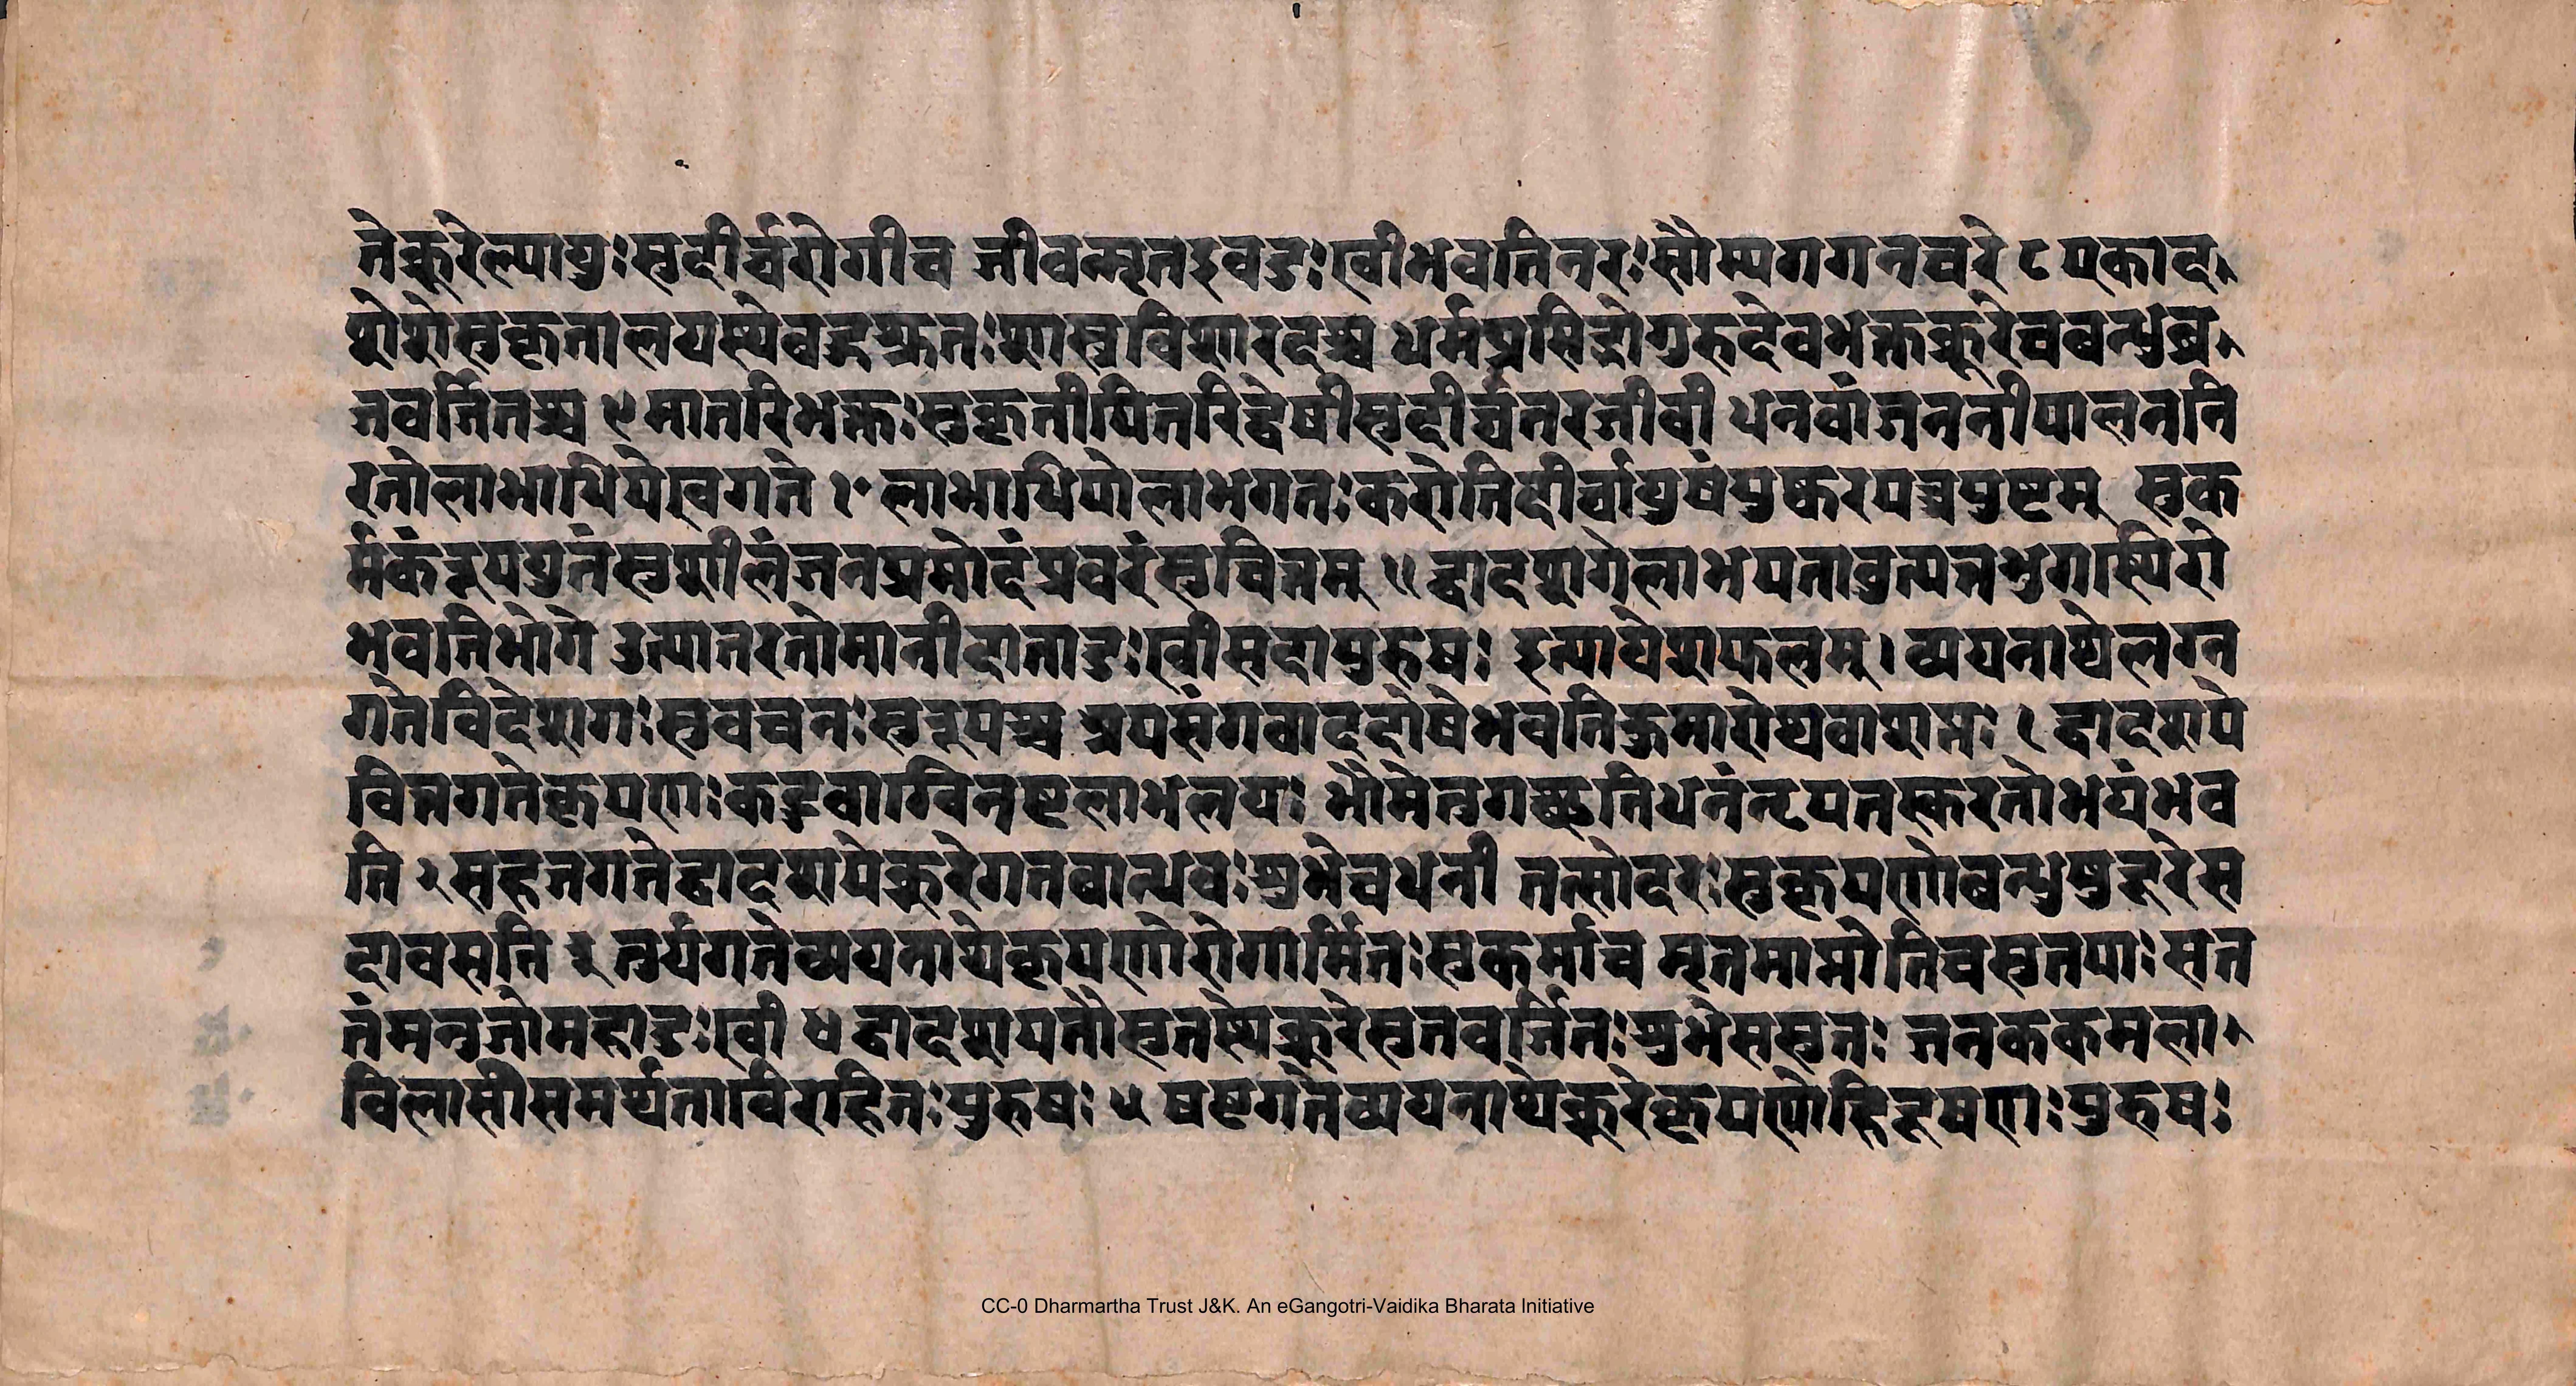 ते क्रूरेल्पायुः सुदीर्घरोगी च जीवन्मृत इव दुःखी भवति नरः सौम्यगगनचरे ८ एकाद
शेशे सुकृतालयस्थे बहुश्रुतः शास्त्रविशारदश्च धर्मप्रसिद्धो गुरुदेवभक्त क्रूरे च बन्धुव्र
जवर्जितश्च ९ मातरि भक्तः सुकृती पितरि द्वेषी सुदीर्घतरजीवी धनवां जननीपालननि
रतो लाभाधिपे खगते १० लाभाधिपो लाभगतः करोति दीर्घायुषं पुष्करपत्रपुष्टम् सुक
र्मकं रूपयुतं सुशीलं जनप्रमोदं प्रवरं सुचित्तम् ११ द्वादशगे लाभपतावुत्पन्नभुगास्थिरो
भवति भोगे उत्पातरतो मानी दाता दुःखी सदा पुरुषः इत्यायेशफलम्। व्ययनाथे लग्न
गते विदेशगः सुवचनः सुरूपश्च अपसंगवाददोषे भवति कुमारोथवा शत्रुः १ द्वादशपे
वित्तगते कृपणः कटुवाग्विनष्टलाभलयः भौमेन गच्छति धनं नृपतस्करतो भयं भव
ति २ सहजगते द्वादशपे क्रूरे गतबान्धवः शुभे च धनी तत्सोदरः सुकृपणो बन्धुषु दूरे स
दा वसति ३ तुर्यगते व्ययनाथे कृपणो रोगार्मितः सुकर्मा च मृतमाप्नोति च सुतपाः सत
तं मनुजो महादुःखी ४ द्वादशपतौ सुतस्थे क्रूरे सुतवर्जितः शुभे ससुतः जनककमला
विलासी समर्थताविराहितः पुरुषः ५ षष्टगते व्ययनाथे क्रूरे कृपणो हि दूषणः पुरुषः
CC-0 Dharmartha Trust J&K. An eGangotri-Vaidika Bharata Initiative